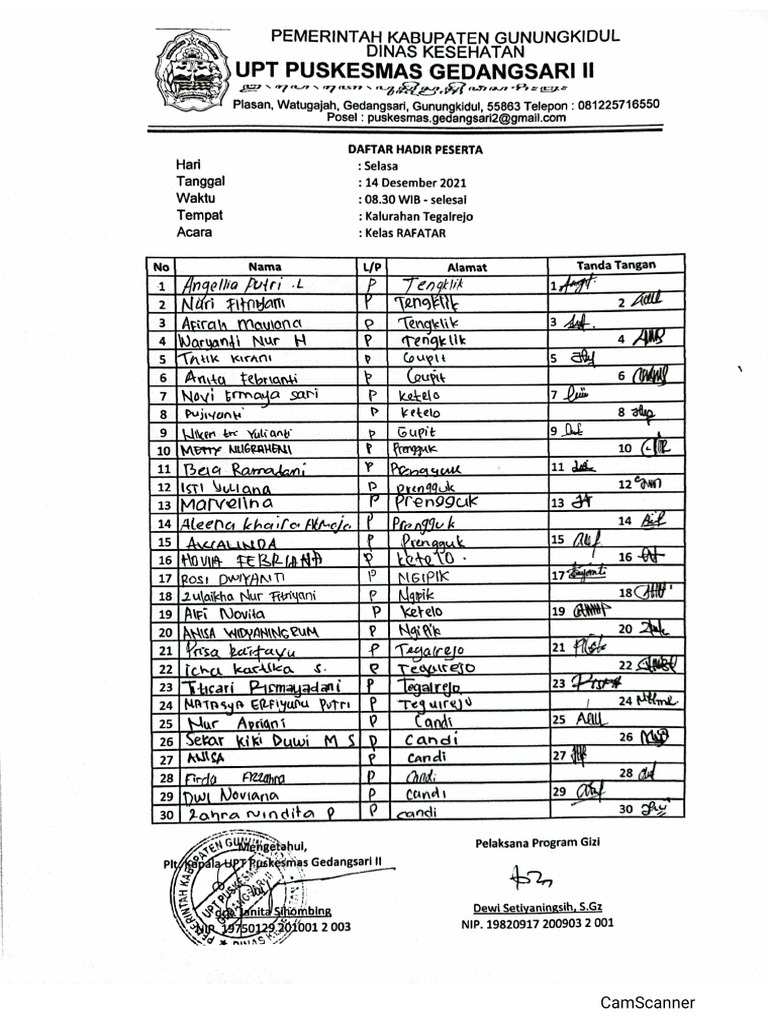 PEMERINTAH KABUPATEN GUNUNGKIDUL
DINAS KESEHATAN
UPT PUSKESMAS GEDANGSARI II
Plasan, Watugajah, Gedangsari, Gunungkidul, 55863 Telepon : 081225716550
Posel : puskesmas.gedangsari2@gmail.com
DAFTAR HADIR PESERTA
Hari : Selasa
Tanggal : 14 Desember 2021
Waktu : 08.30 WIB - selesai
Tempat : Kalurahan Tegalrejo
Acara : Kelas RAFATAR
No Nama L/P Alamat Tanda Tangan
1 Angellia Putri .L P Tengklik 1
2 Nuri Fitriyani P Tengklik 2
3 Afirah Maulana P Tengklik 3
4 Waryanti Nur H P Tengklik 4
5 Tatik Kirani P Gupit 5
6 Anita Febrianti P Gupit 6
7 Novi Ermaya sari P Ketelo 7
8 Pujiyanti P Ketelo 8
9 Niken tri Yulianti P Gupit 9
10 METTY NUGRAHENI P Prengguk 10
11 Bela Ramadani P Prengguk 11
12 ISTI Yuliana P Prengguk 12
13 Marvelina P Prengguk 13
14 Aleena Khaira Atmaja P Prengguk 14
15 AWALINDA P Prengguk 15
16 NOVIA FEBRIANA P KETELO . 16
17 ROSI DWIYANTI P NGIPIK 17
18 Zulaikha Nur Fitriyani P Ngipik 18
19 Alfi Novita P Ketelo 19
20 ANISA WIDYANINGRUM P Ngipik 20
21 Prisa P Tegalrejo 21
22 Icha Kartika S. P Tegalrejo 22
23 Titicari Rismayadani P Tegalrejo 23
24 NATASYA ERFIYUNU PUTRI P Tegalrejo 24
25 Nur Apriani P Candi 25
26 Sekar Kiki Duwi M S P Candi 26
27 ANISA P Candi 27
28 Firda Azzahra P Candi 28
29 Dwi Noviana P Candi 29
30 Zahra Nindita P P Candi 30
Mengetahui,
Plt. Kepala UPT Puskesmas Gedangsari II
Pelaksana Program Gizi
drg. Janita Sihombing
NIP. 19750129 201001 2 003
Dewi Setiyaningsih, S.Gz
NIP. 19820917 200903 2 001
CamScanner